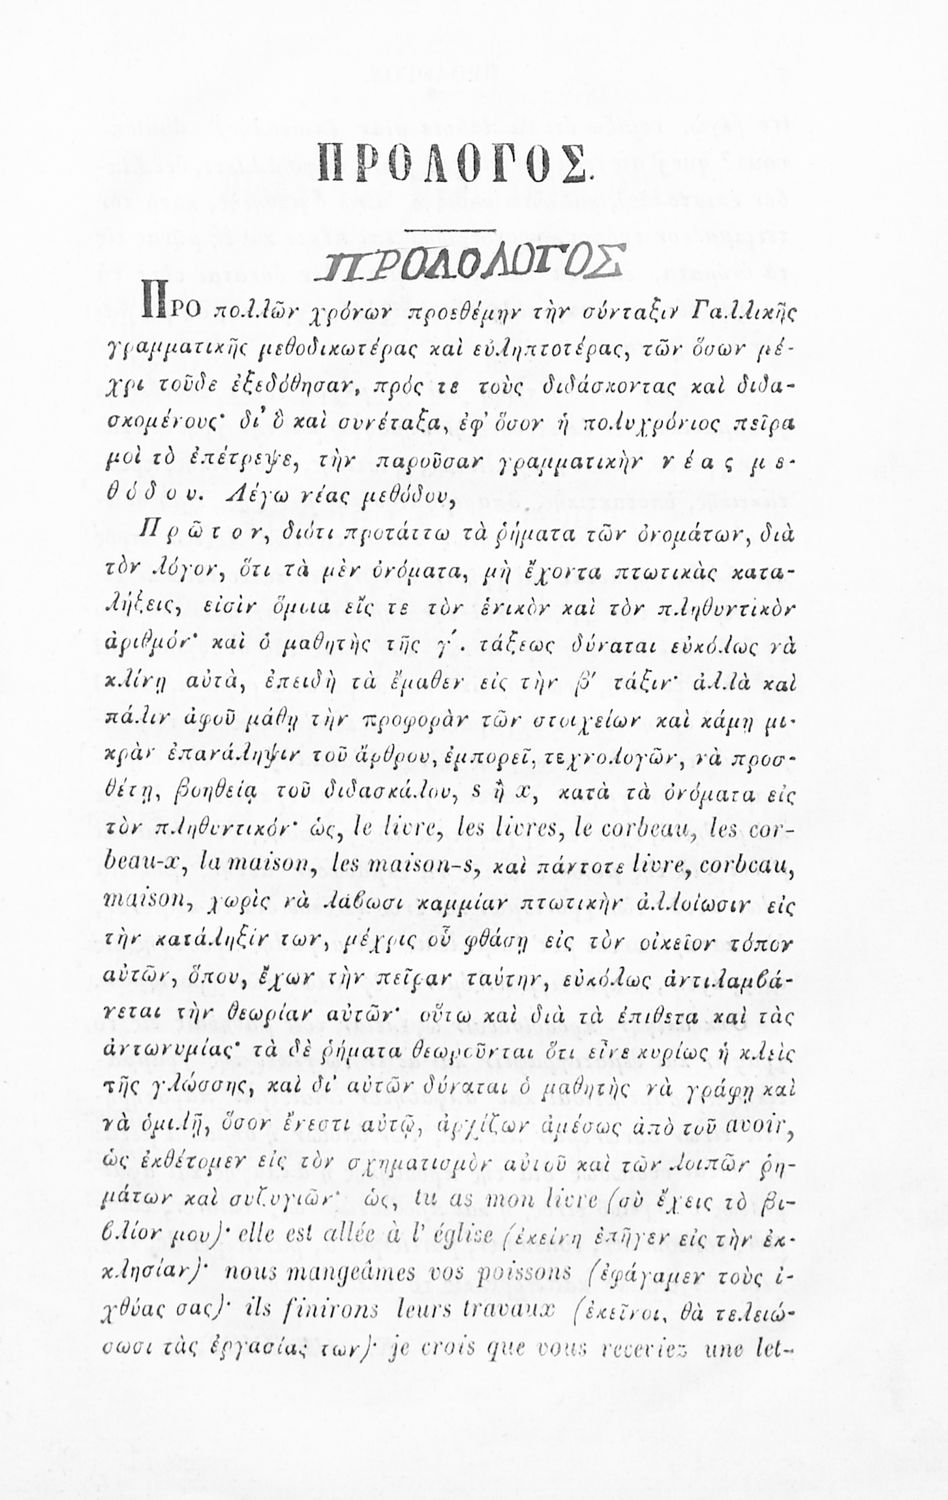 ΠΡΟΛΟΓΟΣ.
ΠΡΟΔΟΛΟΓΟΣ
ΠΡΟ πολλῶν χρόνων προεθέμην τὴν σύνταξιν Γαλλικῆς
γραμματικῆς μεθοδικωτέρας καὶ εὐληπτοτέρας, τῶν ὅσων μέ-
χρι τοῦδε ἐξεδόθησαν, πρός τε τοὺς διδάσκοντας καὶ διδα-
σκομένους· δι' ὃ καὶ συνέταξα, ἐφ' ὅσον ἡ πολυχρόνιος πεῖρα
μοὶ τὸ ἐπέτρεψε, τὴν παροῦσαν γραμματικὴν νέας με-
θόδου. Λέγω νέας μεθόδου,
Πρῶτον, διότι προτάττω τὰ ῥήματα τῶν ὀνομάτων, διὰ
τὸν λόγον, ὅτι τὰ μὲν ὀνόματα, μὴ ἔχοντα πτωτικὰς κατα-
λήξεις, εἰσὶν ὅμοια εἴς τε τὸν ἑνικὸν καὶ τὸν πληθυντικὸν
ἀριθμόν· καὶ ὁ μαθητὴς τῆς γ΄. τάξεως δύναται εὐκόλως νὰ
κλίνῃ αὐτὰ, ἐπειδὴ τὰ ἔμαθεν εἰς τὴν β΄ τάξιν· ἀλλὰ καὶ
πάλιν ἀφοῦ μάθῃ τὴν προφορὰν τῶν στοιχείων καὶ κάμῃ μι-
κρὰν ἐπανάληψιν τοῦ ἄρθρου, ἐμπορεῖ, τεχνολογῶν, νὰ προσ-
θέτῃ, βοηθείᾳ τοῦ διδασκάλου, s ἢ x, κατὰ τὰ ὀνόματα εἰς
τὸν πληθυντικόν· ὡς, le livre, les livres, le corbeau, les cor-
beau-x, la maison, les maison-s, καὶ πάντοτε livre, corbeau,
maison, χωρὶς νὰ λάβωσι καμμίαν πτωτικὴν ἀλλοίωσιν εἰς
τὴν κατάληξίν των, μέχρις οὗ φθάσῃ εἰς τὸν οἰκεῖον τόπον
αὐτῶν, ὅπου, ἔχων τὴν πεῖραν ταύτην, εὐκόλως ἀντιλαμβά-
νεται τὴν θεωρίαν αὐτῶν· οὕτω καὶ διὰ τὰ ἐπίθετα καὶ τὰς
ἀντωνυμίας· τὰ δὲ ῥήματα θεωροῦνται ὅτι εἶνε κυρίως ἡ κλεὶς
τῆς γλώσσης, καὶ δι' αὐτῶν δύναται ὁ μαθητὴς νὰ γράφῃ καὶ
νὰ ὁμιλῇ, ὅσον ἔνεστι αὐτῷ, ἀρχίζων ἀμέσως ἀπὸ τοῦ avoir,
ὡς ἐκθέτομεν εἰς τὸν σχηματισμὸν αὐτοῦ καὶ τῶν λοιπῶν ῥη-
μάτων καὶ συζυγιῶν· ὡς, tu as mon livre (σὺ ἔχεις τὸ βι-
βλίον μου)· elle est allée à l' église (ἐκείνη ἐπῆγεν εἰς τὴν ἐκ-
κλησίαν)· nous mangeâmes vos poissons (ἐφάγαμεν τοὺς ἰ-
χθύας σας)· ils finirons leurs travaux (ἐκεῖνοι, θὰ τελειώ-
σωσι τὰς ἐργασίας των)· je crois que vous receviez une let-